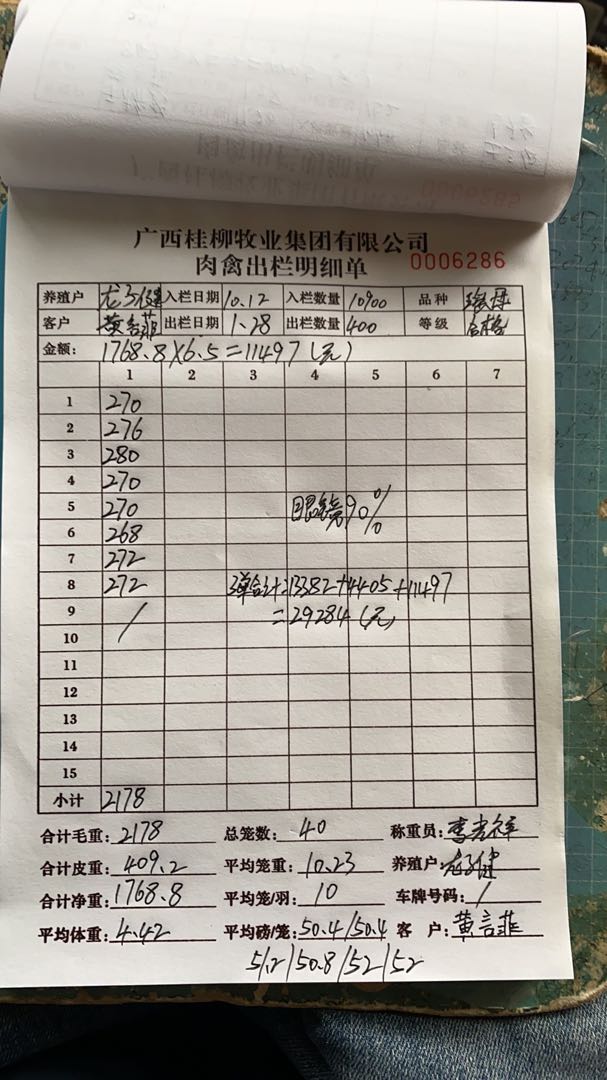 广西桂柳牧业集团有限公司
肉禽出栏明细单 0006286
养殖户 龙子健 入栏日期 10.12 入栏数量 10900 品种
客户 黄言菲 出栏日期 1.28 出栏数量 400 等级 合格
金额: 1768.8×6.5=11497(元)
1 2 3 4 5 6 7
1 270
2 276
3 280
4 270
5 270 眼镜90%
6 268
7 272
8 272 3单合计=13382+4405+11497
9 / =29284(元)
10
11
12
13
14
15
小计 2178
合计毛重: 2178 总笼数: 40 称重员: 李光祥
合计皮重: 409.2 平均笼重: 10.23 养殖户: 龙子健
合计净重: 1768.8 平均笼/羽: 10 车牌号码: /
平均体重: 4.42 平均磅/笼: 50.4/50.4 客户: 黄言菲
51.2/50.8/52/52